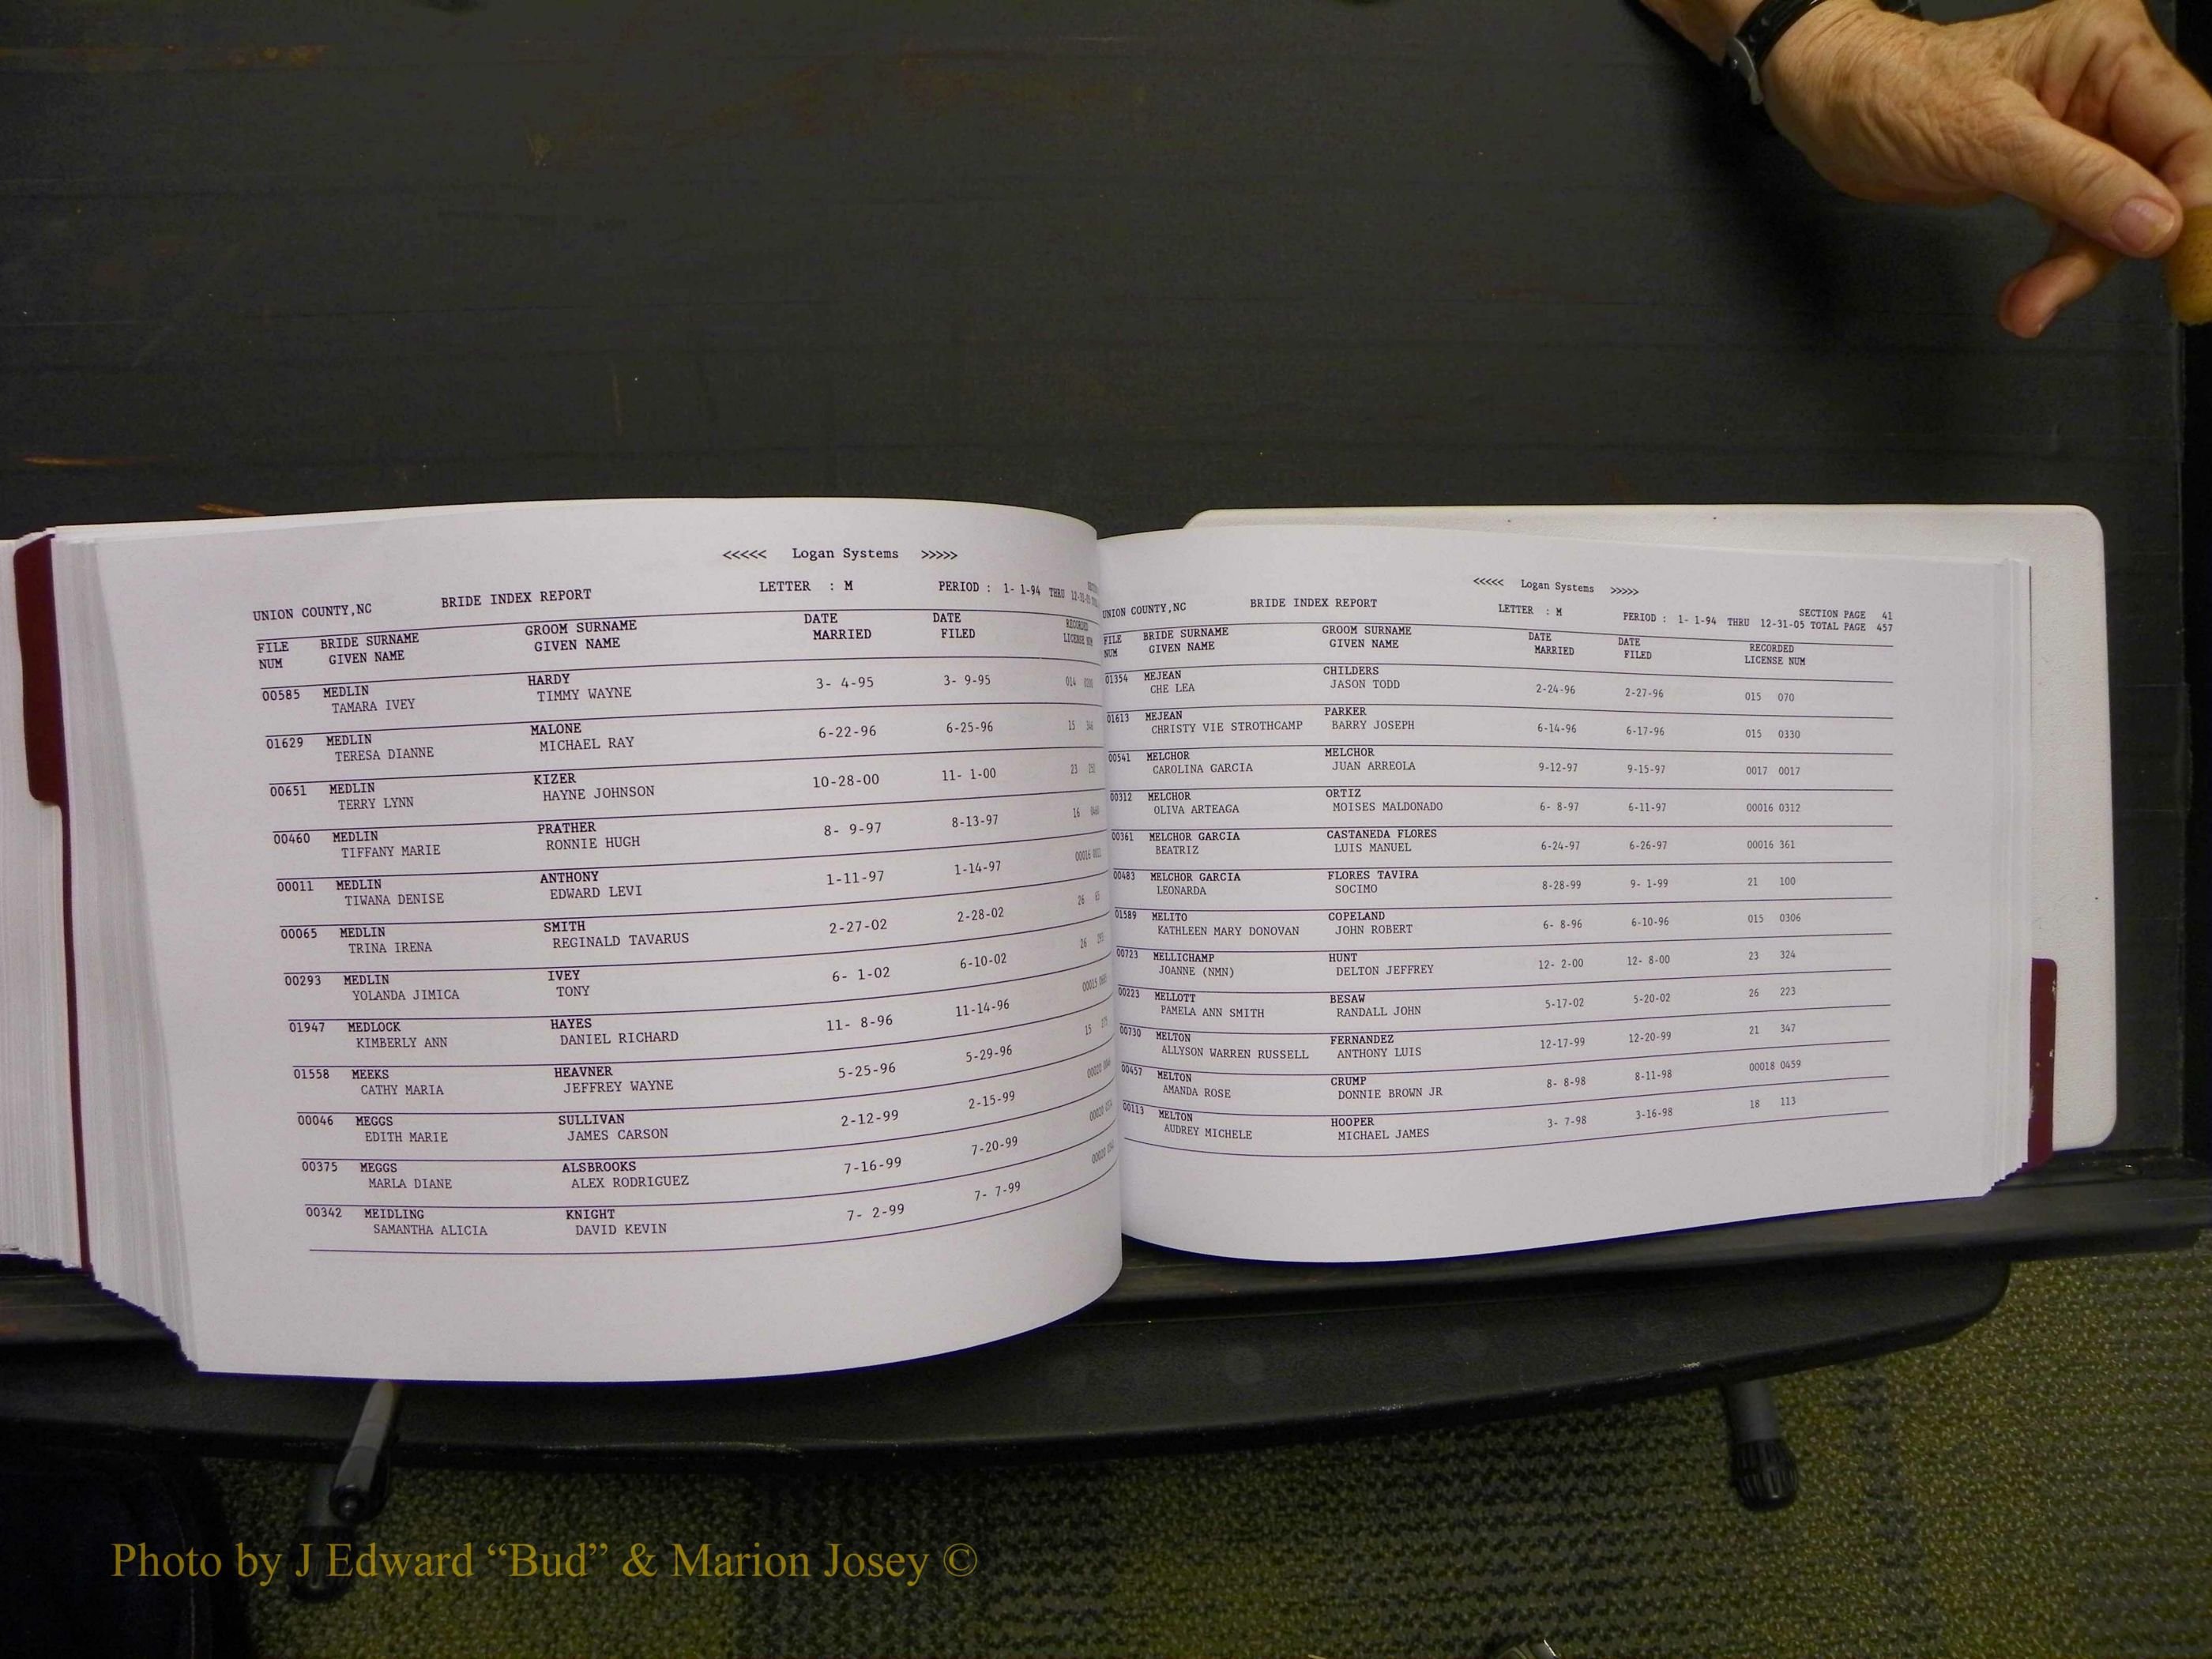 <<<<< Logan Systems >>>>>
UNION COUNTY,NC BRIDE INDEX REPORT LETTER : M PERIOD : 1- 1-94 THRU
FILE BRIDE SURNAME GROOM SURNAME DATE DATE RECORDED
NUM GIVEN NAME GIVEN NAME MARRIED FILED LICENSE NUM
00585 MEDLIN HARDY 3- 4-95 3- 9-95 014
TAMARA IVEY TIMMY WAYNE
01629 MEDLIN MALONE 6-22-96 6-25-96 15
TERESA DIANNE MICHAEL RAY
00651 MEDLIN KIZER 10-28-00 11- 1-00 23
TERRY LYNN HAYNE JOHNSON
00460 MEDLIN PRATHER 8- 9-97 8-13-97 16
TIFFANY MARIE RONNIE HUGH
00011 MEDLIN ANTHONY 1-11-97 1-14-97 00016
TIWANA DENISE EDWARD LEVI
00065 MEDLIN SMITH 2-27-02 2-28-02 26
TRINA IRENA REGINALD TAVARUS
00293 MEDLIN IVEY 6- 1-02 6-10-02 26
YOLANDA JIMICA TONY
01947 MEDLOCK HAYES 11- 8-96 11-14-96 00015
KIMBERLY ANN DANIEL RICHARD
01558 MEEKS HEAVNER 5-25-96 5-29-96 15
CATHY MARIA JEFFREY WAYNE
00046 MEGGS SULLIVAN 2-12-99 2-15-99 00020
EDITH MARIE JAMES CARSON
00375 MEGGS ALSBROOKS 7-16-99 7-20-99 00020
MARLA DIANE ALEX RODRIGUEZ
00342 MEIDLING KNIGHT 7- 2-99 7- 7-99 00020
SAMANTHA ALICIA DAVID KEVIN
<<<<< Logan Systems >>>>>
SECTION PAGE 41
UNION COUNTY,NC BRIDE INDEX REPORT LETTER : M PERIOD : 1- 1-94 THRU 12-31-05 TOTAL PAGE 457
FILE BRIDE SURNAME GROOM SURNAME DATE DATE RECORDED
NUM GIVEN NAME GIVEN NAME MARRIED FILED LICENSE NUM
01354 MEJEAN CHILDERS 2-24-96 2-27-96 015 070
CHE LEA JASON TODD
01613 MEJEAN PARKER 6-14-96 6-17-96 015 0330
CHRISTY VIE STROTHCAMP BARRY JOSEPH
00541 MELCHOR MELCHOR 9-12-97 9-15-97 0017 0017
CAROLINA GARCIA JUAN ARREOLA
00312 MELCHOR ORTIZ 6- 8-97 6-11-97 00016 0312
OLIVA ARTEAGA MOISES MALDONADO
00361 MELCHOR GARCIA CASTANEDA FLORES 6-24-97 6-26-97 00016 361
BEATRIZ LUIS MANUEL
00483 MELCHOR GARCIA FLORES TAVIRA 8-28-99 9- 1-99 21 100
LEONARDA SOCIMO
01589 MELITO COPELAND 6- 8-96 6-10-96 015 0306
KATHLEEN MARY DONOVAN JOHN ROBERT
00723 MELLICHAMP HUNT 12- 2-00 12- 8-00 23 324
JOANNE (NMN) DELTON JEFFREY
00223 MELLOTT BESAW 5-17-02 5-20-02 26 223
PAMELA ANN SMITH RANDALL JOHN
00730 MELTON FERNANDEZ 12-17-99 12-20-99 21 347
ALLYSON WARREN RUSSELL ANTHONY LUIS
00457 MELTON CRUMP 8- 8-98 8-11-98 00018 0459
AMANDA ROSE DONNIE BROWN JR
00113 MELTON HOOPER 3- 7-98 3-16-98 18 113
AUDREY MICHELE MICHAEL JAMES
Photo by J Edward “Bud” & Marion Josey ©